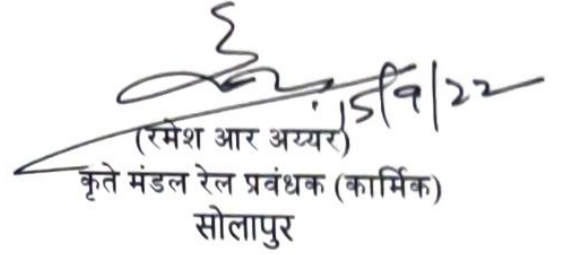 15/9/22
(रमेश आर अय्यर)
कृते मंडल रेल प्रवंधक (कार्मिक)
सोलापुर